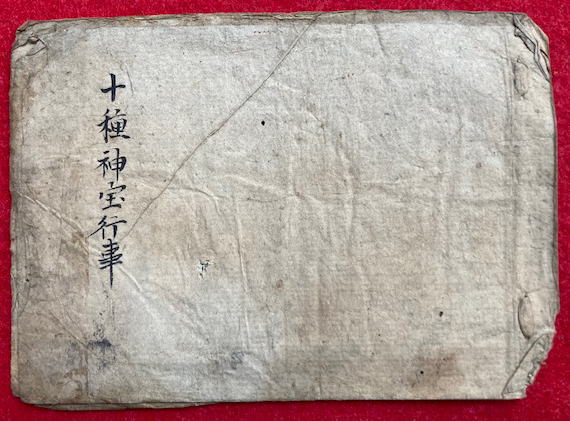 十種神宝行事